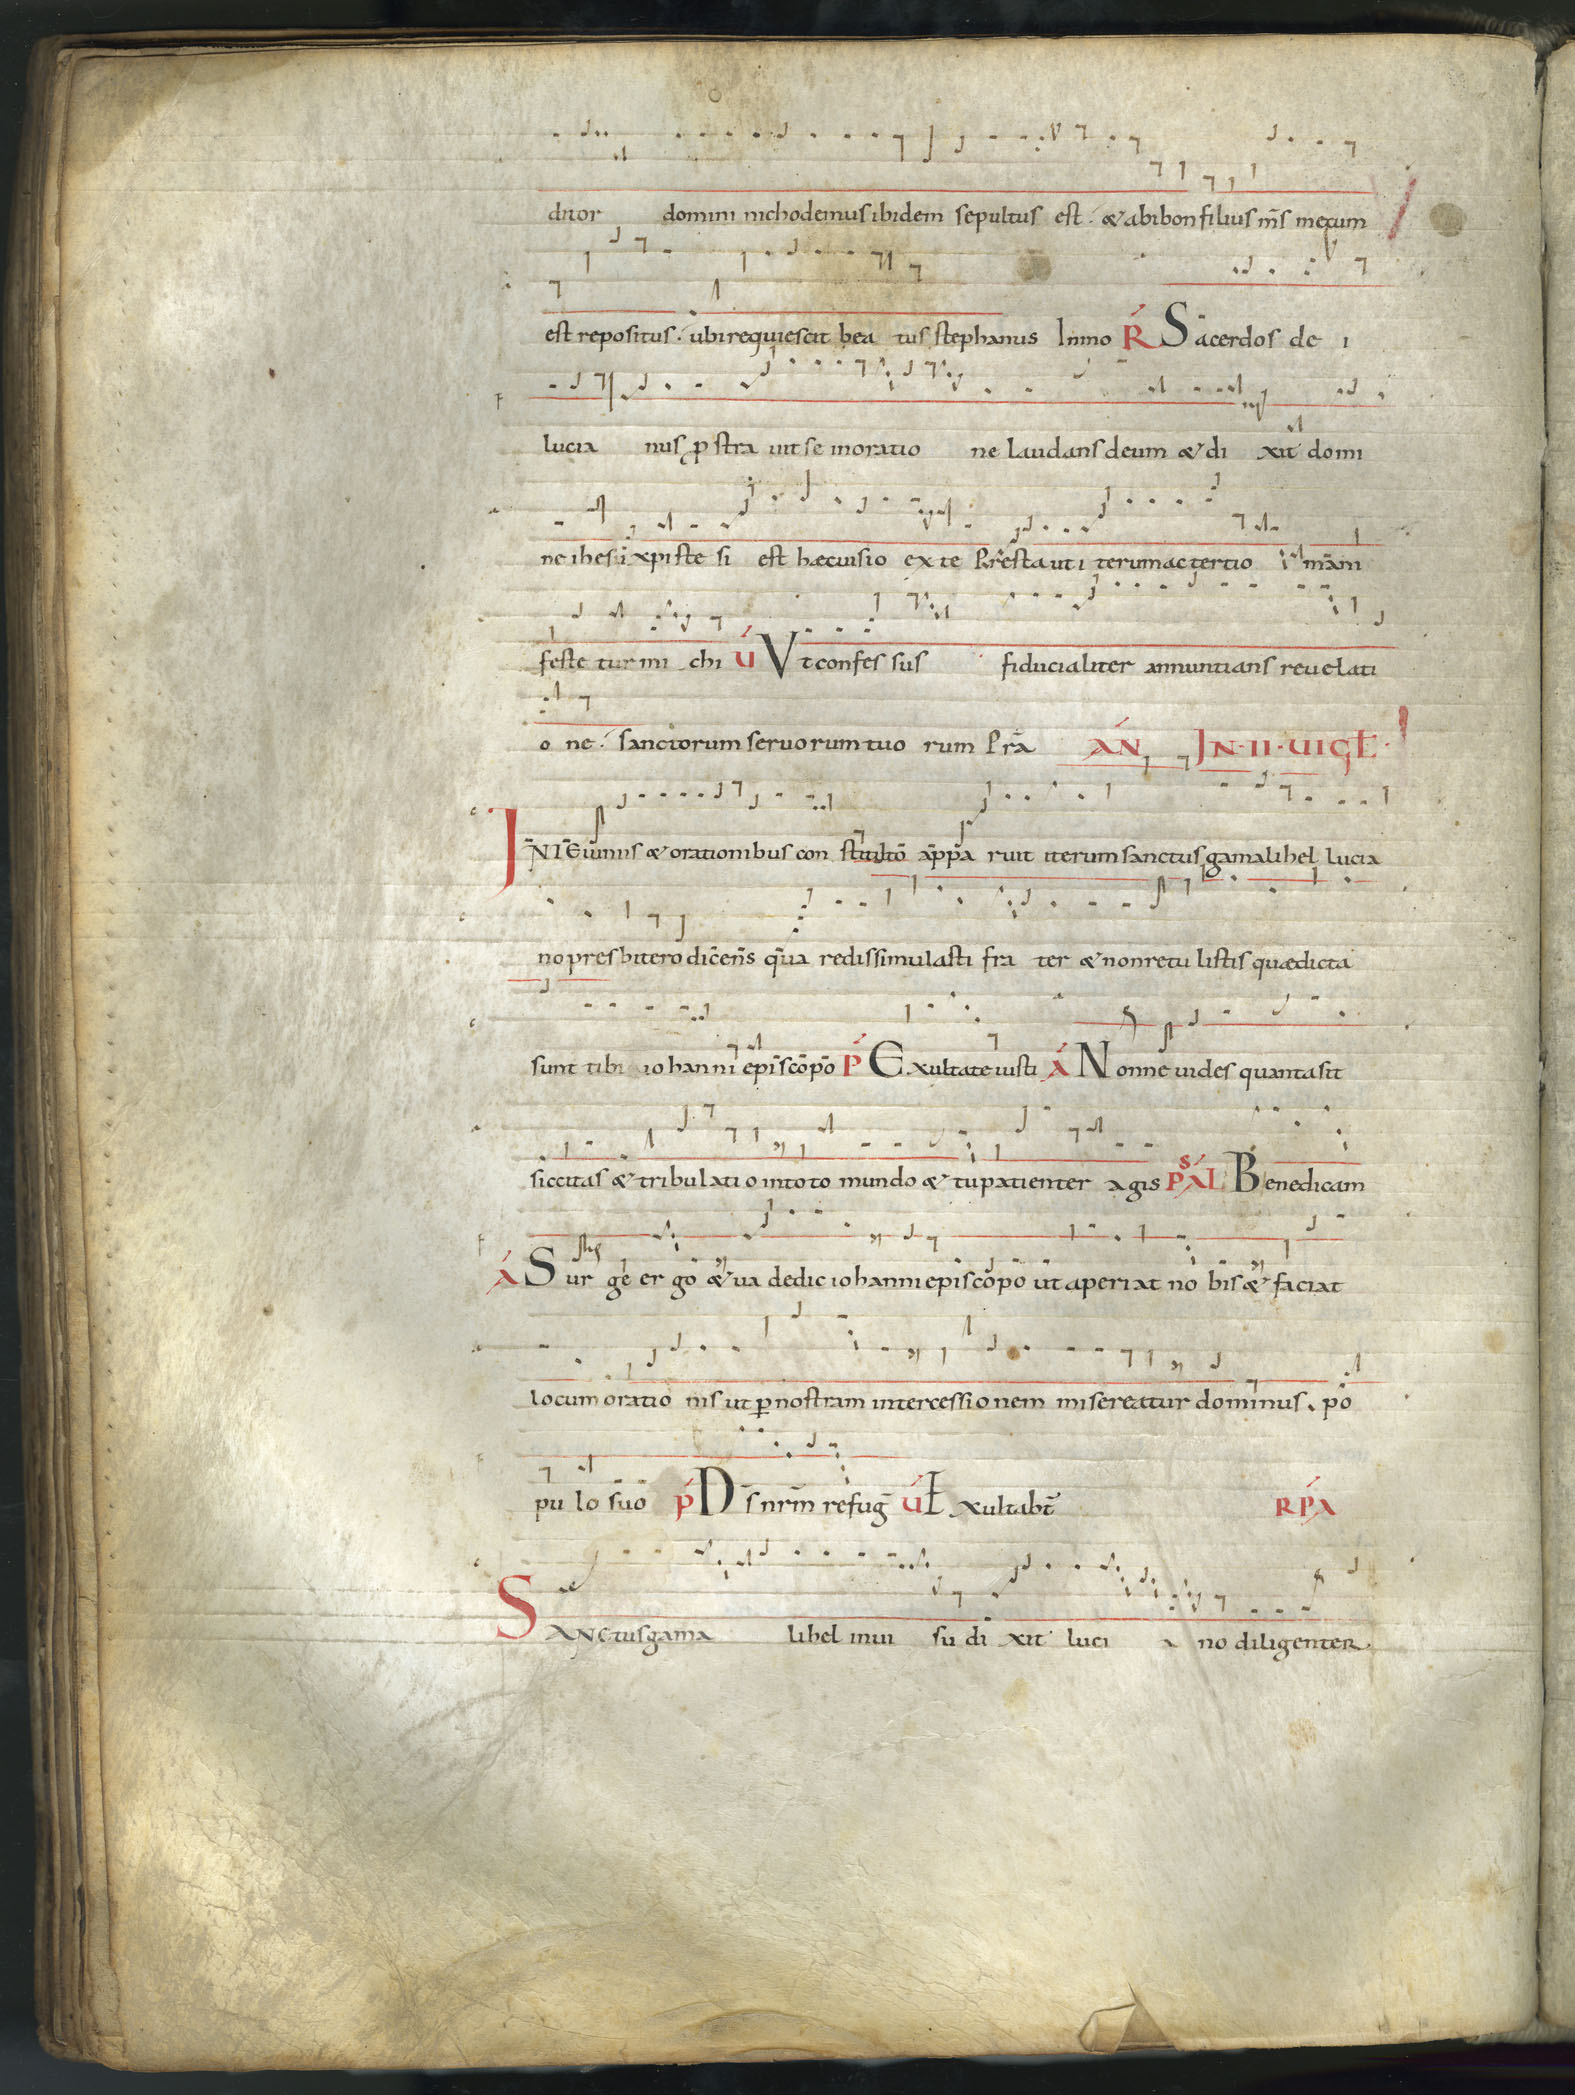 ditor domini nichodemus ibidem sepultus est. & abibon filius m̄s mecum
est repositus. ubi requiescit bea tus stephanus In mo R̄ Sacerdos de i
lucia nus ꝓstra uit se in oratio ne laudans deum & di xit domi
ne ihesu xpiste si est hæc uisio ex te Presta ut i terum ac tertio i māni
feste tur mi chi V́ Vt confes sus fiducialiter annuntians reuelati
o ne. sanctorum seruorum tuo rum Prā ÁN IN·II·UIGT̄·
IN IEiuniis & orationibus con appa ruit iterum sanctus gamalihel lucia
no presbitero dicēns quā re dissimulasti fra ter & non retu listis quæ dicta
sunt tibi iohanni episcopo Ṕ Exultate iusti Á Nonne uides quanta sit
siccitas & tribulatio in toto mundo & tu patienter agis PSAL Benedicam
Á Sur ge er go & uade dic iohanni episcopo ut aperiat no bis & faciat
locum oratio nis ut ꝑ nostram intercessionem misereatur dominus. po
pu lo suo ṕ D̄s nrm̄ refug̅ V́ Exultabt̄ RPÁ
SANctus gama lihel in ui su di xit luci a no diligenter